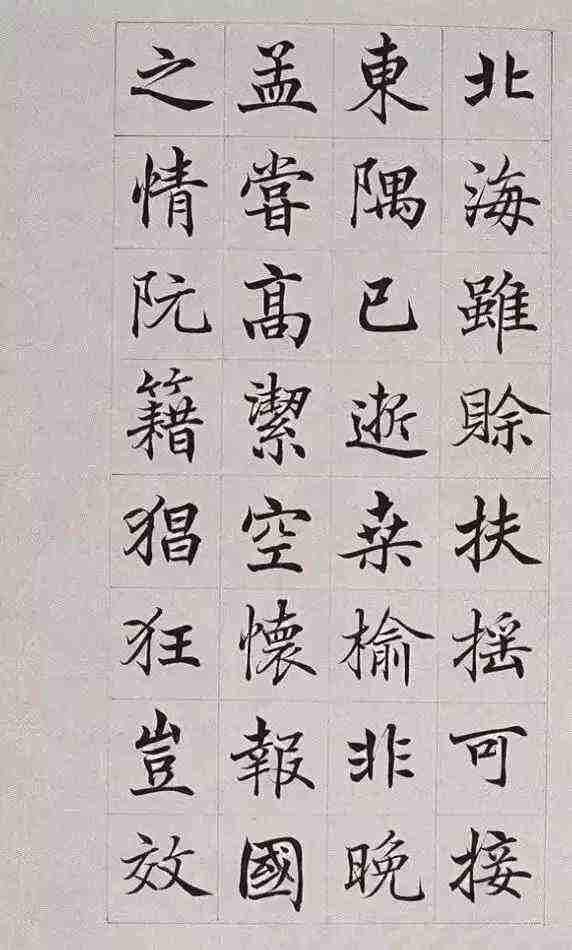 北海雖賒扶摇可接
東隅已逝桒榆非晚
孟嘗高潔空懷報國
之情阮籍猖狂豈效